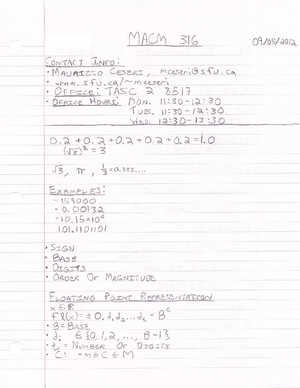 MACM 316
09/05/2012
CONTACT INFO:
• MAURIZIO CESERI, mceseri@sfu.ca
• www.sfu.ca/~mceseri
• OFFICE: TASC 2 8517
• OFFICE HOURS: MON. 11:30-12:30
TUES. 11:30-12:30
WED. 12:30-13:30
0.2+0.2+0.2+0.2+0.2=1.0
(√3)² = 3
√3, π, 1/3=0.333....
EXAMPLES:
-159000
= 0.00132
-10.15×10⁶
101.1101101
• SIGN
• BASE
• DIGITS
• ORDER OF MAGNITUDE
FLOATING POINT REPRESENTATION
x∈R
fl(x)= ± 0.d₁d₂...dₜ × Bᶜ
• B=BASE
• dᵢ ∈{0,1,2,..., B-1}
• t = NUMBER OF DIGITS
• C: -m≤C≤M